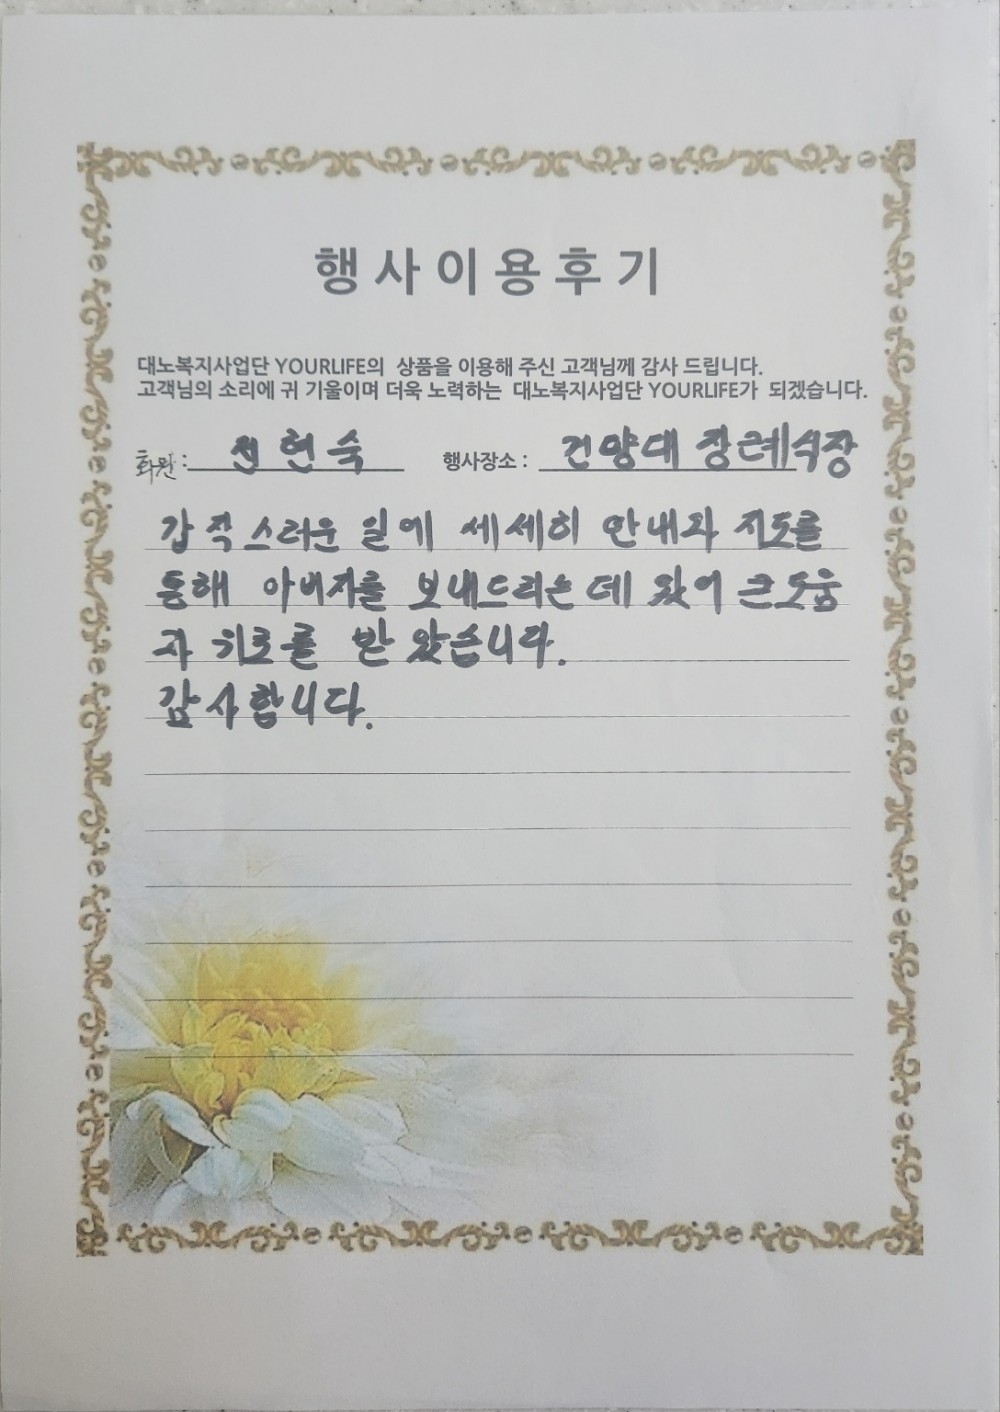 행사이용후기
대노복지사업단 YOURLIFE의 상품을 이용해 주신 고객님께 감사 드립니다.
고객님의 소리에 귀 기울이며 더욱 노력하는 대노복지사업단 YOURLIFE가 되겠습니다.
회원 : 현숙 행사장소 : 건양대 장례식장
갑작스러운 일에 세세히 안내와 지도를
통해 아버지를 보내드리는데 있어 큰 도움
과 위로를 받았습니다.
감사합니다.